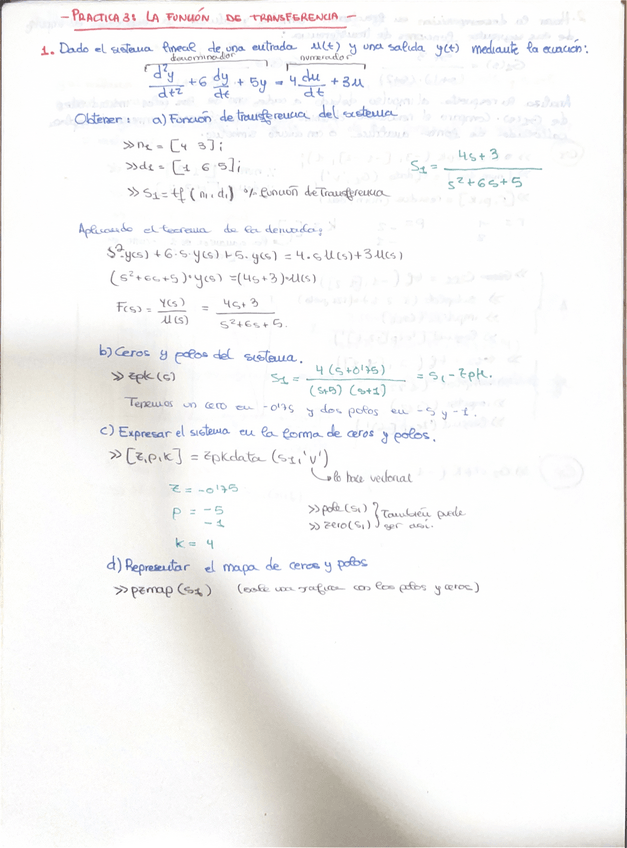 - PRACTICA 3: LA FUNCIÓN DE TRANSFERENCIA -
1. Dado el sistema lineal de una entrada u(t) y una salida y(t) mediante la ecuación:
denominador numerador
d²y/dt² + 6 dy/dt + 5y = 4 du/dt + 3u
Obtener: a) Función de transferencia del sistema
>> n1 = [4 3];
>> d1 = [1 6 5];
S1 = 4s+3 / s²+6s+5
>> S1 = tf (n1, d1) % función de Transferencia
Aplicando el teorema de la derivada:
S²·y(s) + 6·s·y(s) + 5·y(s) = 4·s u(s) + 3 u(s)
(s²+6s+5)·y(s) = (4s+3)·u(s)
F(s) = y(s)/u(s) = 4s+3 / s²+6s+5.
b) Ceros y polos del sistema.
>> zpk(s) S1 = 4 (s+0'75) / (s+5) (s+1) = s1-zpk.
Tenemos un cero en -0'75 y dos polos en -5 y -1.
c) Expresar el sistema en la forma de ceros y polos.
>> [z,p,k] = zpkdata (s1,'v')
lo hace vectorial
z = -0'75
p = -5
-1
>> pole(s1)
>> zero(s1)
También puede
ser así.
k = 4
d) Representar el mapa de ceros y polos
>> pzmap (s1) (sale una grafica con los polos y ceros)